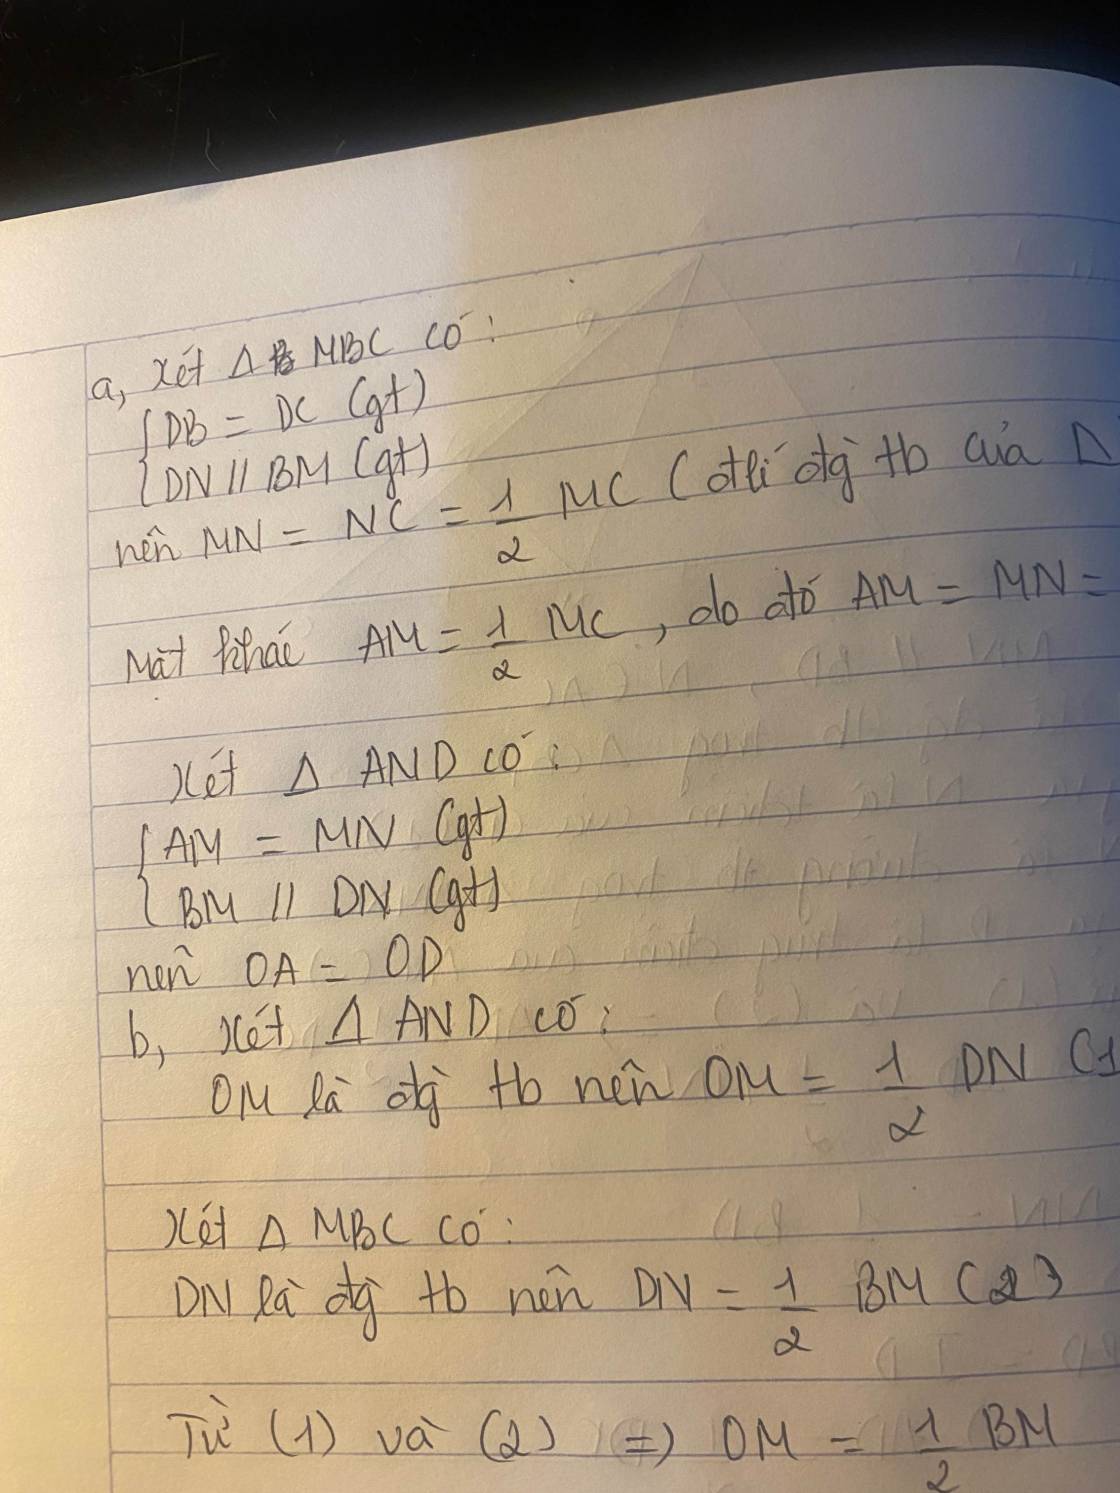 a, Xét Δ MBC có:
{ DB = DC (gt)
{ DN // BM (gt)
nên MN = NC = 1/2 MC (đlí đg tb của Δ
Mặt khác AM = 1/2 MC, do đó AM = MN =
Xét Δ AND có:
{ AM = MN (gt)
{ BM // DN (gt)
nên OA = OD
b, Xét Δ AND có:
OM là đg tb nên OM = 1/2 DN (1
Xét Δ MBC có:
DN là đg tb nên DN = 1/2 BM (2)
Từ (1) và (2) => OM = 1/2 BM